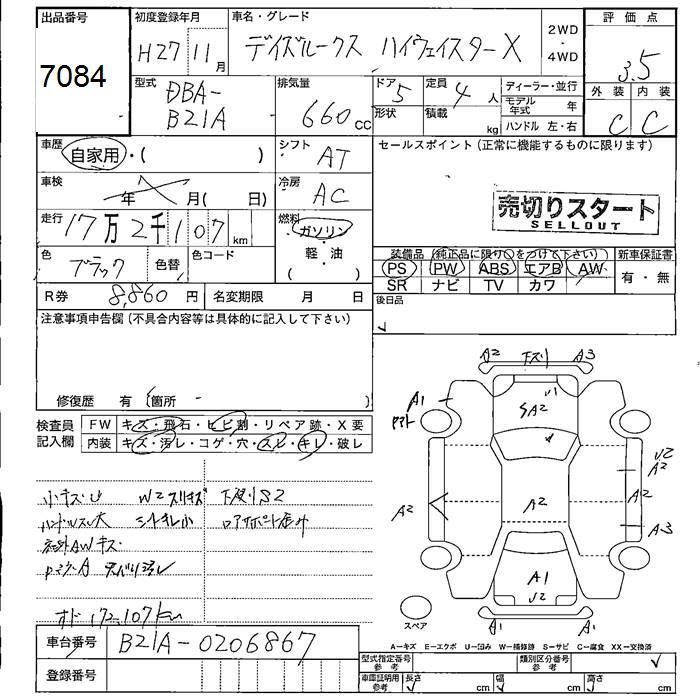 出品番号
7084
初度登録年月
H27 11月
車名・グレード
デイズルークス ハイウェイスターX
2WD
・
4WD
評価点
3.5
型式
DBA-
B21A
排気量
660cc
ドア
5
形状
定員
4人
積載
kg
ディーラー・並行
モデル年式 年
ハンドル 左・右
外装 内装
C C
車歴
自家用・( )
シフト
AT
セールスポイント(正常に機能するものに限ります)
車検
年 月( 日)
冷房
AC
売切りスタート
SELLOUT
走行
17万2千107km
燃料
ガソリン
・
軽・油
( )
色
ブラック
色替
色コード
装備品(純正品に限り〇をつけて下さい)
新車保証書
PS PW ABS エアB AW
有・無
SR ナビ TV カワ
R券 8,860円
名変期限 月 日
後日品
注意事項申告欄(不具合内容等は具体的に記入して下さい)
修復歴 有(箇所 - )
検査員記入欄
FW キズ・飛石・ヒビ割・リペア跡・X要
内装 キズ・汚レ・コゲ・穴・スレ・キレ・破レ
小キズ・U W2スリキズ 下廻りS2
ハンドルスレ大 シートキレ小
AWキズ
オド172,107km
A2 下ズリ A3
A1
SA2
U2
A2
A2
A2
A2
A3
A1
U2
A1 A1
スペア
A-キズ E-エクボ U-凹み W-補修跡 S-サビ C-腐食 XX-交換済
車台番号 B21A-0206867
登録番号
型式指定番号 参考
類別区分番号 参考
車庫証明用 参考 長さ cm 幅 cm 高さ cm